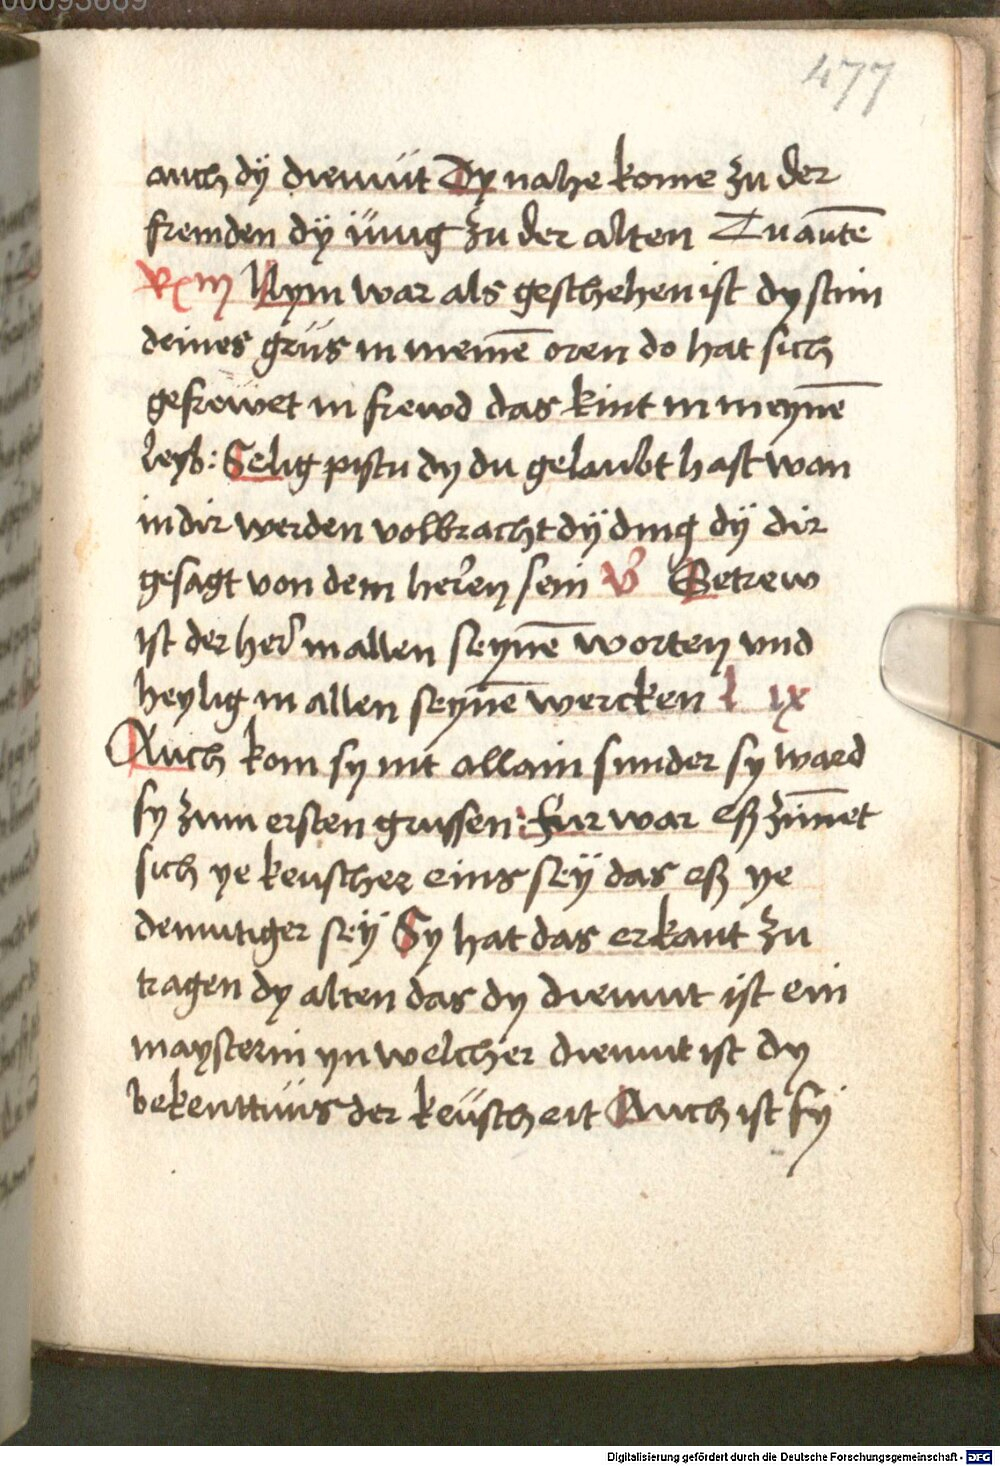 00093689
477
auch dÿ diemut Dy nahe kome zu der
fremden dÿ iung zu der alten Tu autē
Nym war als geschehen ist dy stim
deines grus in meinē oren do hat sich
gefrewet in frewd das kint in meynē
leyb: Selig pistu dy du gelaubt hast wan
in dir werden volbracht dÿ ding dÿ dir
gesagt von dem herren sein V Getrew
ist der her in allen seynē worten vnd
heylig in allen seynē wercken l ix
Auch kom sy nit allain sunder sy ward
sy zum ersten grussen: fur war esz zim̄et
sich ye keuscher eins seÿ das esz ye
demutiger seÿ Sy hat das erkant zu
tragen dy alten das dy diemut ist ein
maysterin yn welcher diemut ist dy
bekentnus der keuscheit Auch ist sy
Digitalisierung gefördert durch die Deutsche Forschungsgemeinschaft - DFG